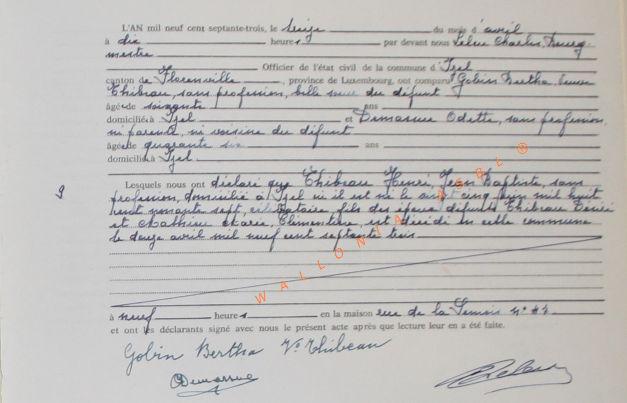 L'AN mil neuf cent septante-trois, le seize du mois d'avril
à dix heures par devant nous Lebeu Charles, Bourg-
mestre
Officier de l'état civil de la commune d'Izel
canton de Florenville, province de Luxembourg, ont comparu Gobin Bertha, veuve
Thibeau, sans profession, belle du défunt
âgée de soixante ans
domiciliée à Izel et Demasure Odette, sans profession,
ni parente, ni voisine du défunt
âgée de quarante six ans
domiciliée à Izel
Lesquels nous ont déclaré que Thibeau Henri, Jean Baptiste, sans
9
profession, domicilié à Izel où il est né le cinq juin mil huit
cent nonante sept, célibataire, fils des époux défunts Thibeau Désiré
et Mathieu Marie, Clémentine, est décédé en cette commune
le douze avril mil neuf cent septante trois
à neuf heures en la maison rue de la Semois n°
et ont les déclarants signé avec nous le présent acte après que lecture leur en a été faite.
Gobin Bertha Ve Thibeau
Demasure
WALLONIA ASBL ®